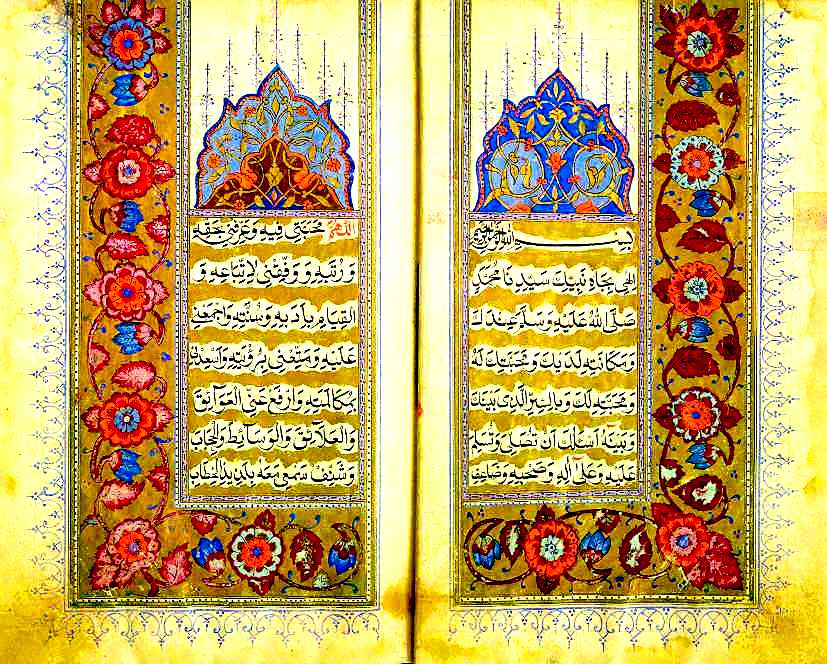 بسم الله الرحمن الرحيم
الهي بجاه نبيك سيدنا محمد
صلى الله عليه وسلم عندك
ومكانته لديك ومحبتك له
ومحبته لك وبالسر الذي بينك
وبينه اسألك ان تصلي وتسلم
عليه وعلى اله وصحبه وضاعف
اللهم محبتي فيه وعرفني بحقه
ورتبه ووفقني لاتباعه و
القيام بادبه وسنته واجمعني
عليه ومتعني برؤيته واسعدني
بمكالمته وارفع عني العوائق
والعلائق والوسائط والحجاب
وشنف سمعي معه بلذيذ الخطاب